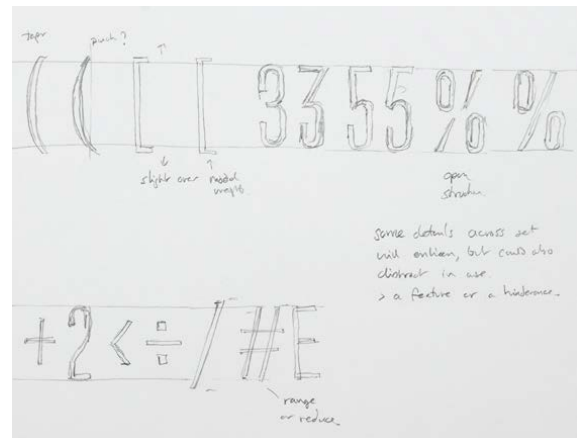 taper
pinch ?
( ( [ [ 3 3 5 5 % %
slight over
modal
open
structure
some details across set
will enliven, but could also
distract in use
> a feature or a hinderance.
+ 2 < ÷ / # E
range
or reduce.